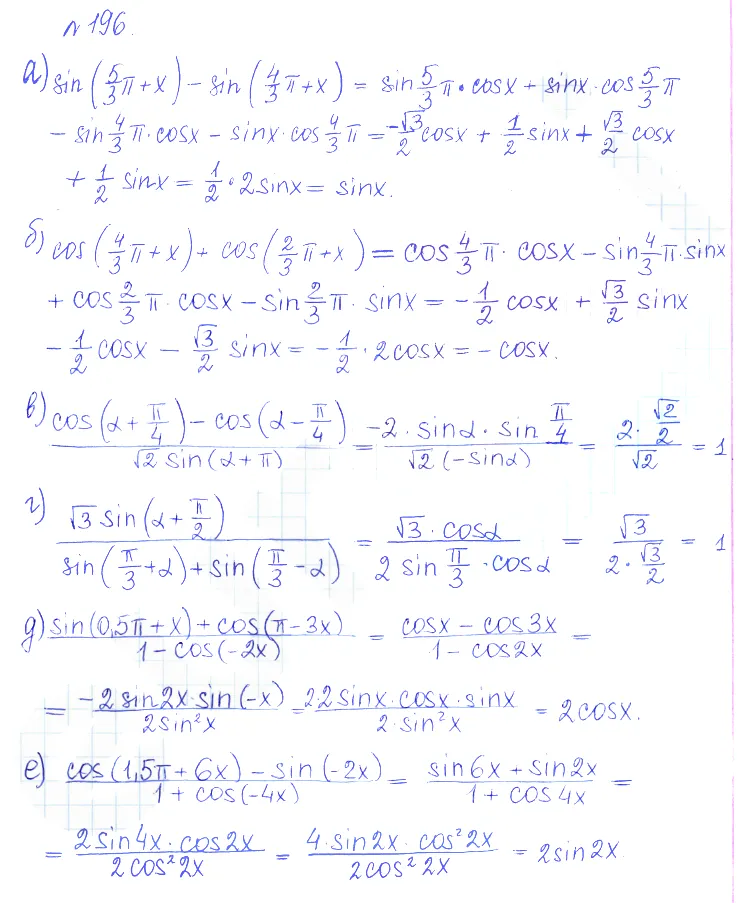 № 196.
а) sin(5/3 π + x) − sin(4/3 π + x) = sin 5/3 π · cosx + sinx · cos 5/3 π
− sin 4/3 π · cosx − sinx · cos 4/3 π = −√3/2 cosx + 1/2 sinx + √3/2 cosx
+ 1/2 sinx = 1/2 · 2sinx = sinx.
б) cos(4/3 π + x) + cos(2/3 π + x) = cos 4/3 π · cosx − sin 4/3 π · sinx
+ cos 2/3 π · cosx − sin 2/3 π · sinx = − 1/2 cosx + √3/2 sinx
− 1/2 cosx − √3/2 sinx = − 1/2 · 2cosx = − cosx.
в) (cos(α + π/4) − cos(α − π/4)) / (√2 sin(α + π)) = (−2 · sinα · sin π/4) / (√2 (−sinα)) = (2 · √2/2) / √2 = 1
г) (√3 sin(α + π/2)) / (sin(π/3 + α) + sin(π/3 − α)) = (√3 · cosα) / (2 sin π/3 · cosα) = √3 / (2 · √3/2) = 1
д) (sin(0,5π + x) + cos(π − 3x)) / (1 − cos(−2x)) = (cosx − cos3x) / (1 − cos2x) =
= (−2sin2x · sin(−x)) / (2sin²x) = (2·2sinx · cosx · sinx) / (2·sin²x) = 2cosx.
е) (cos(1,5π + 6x) − sin(−2x)) / (1 + cos(−4x)) = (sin6x + sin2x) / (1 + cos4x) =
= (2sin4x · cos2x) / (2cos²2x) = (4·sin2x · cos²2x) / (2cos²2x) = 2sin2x